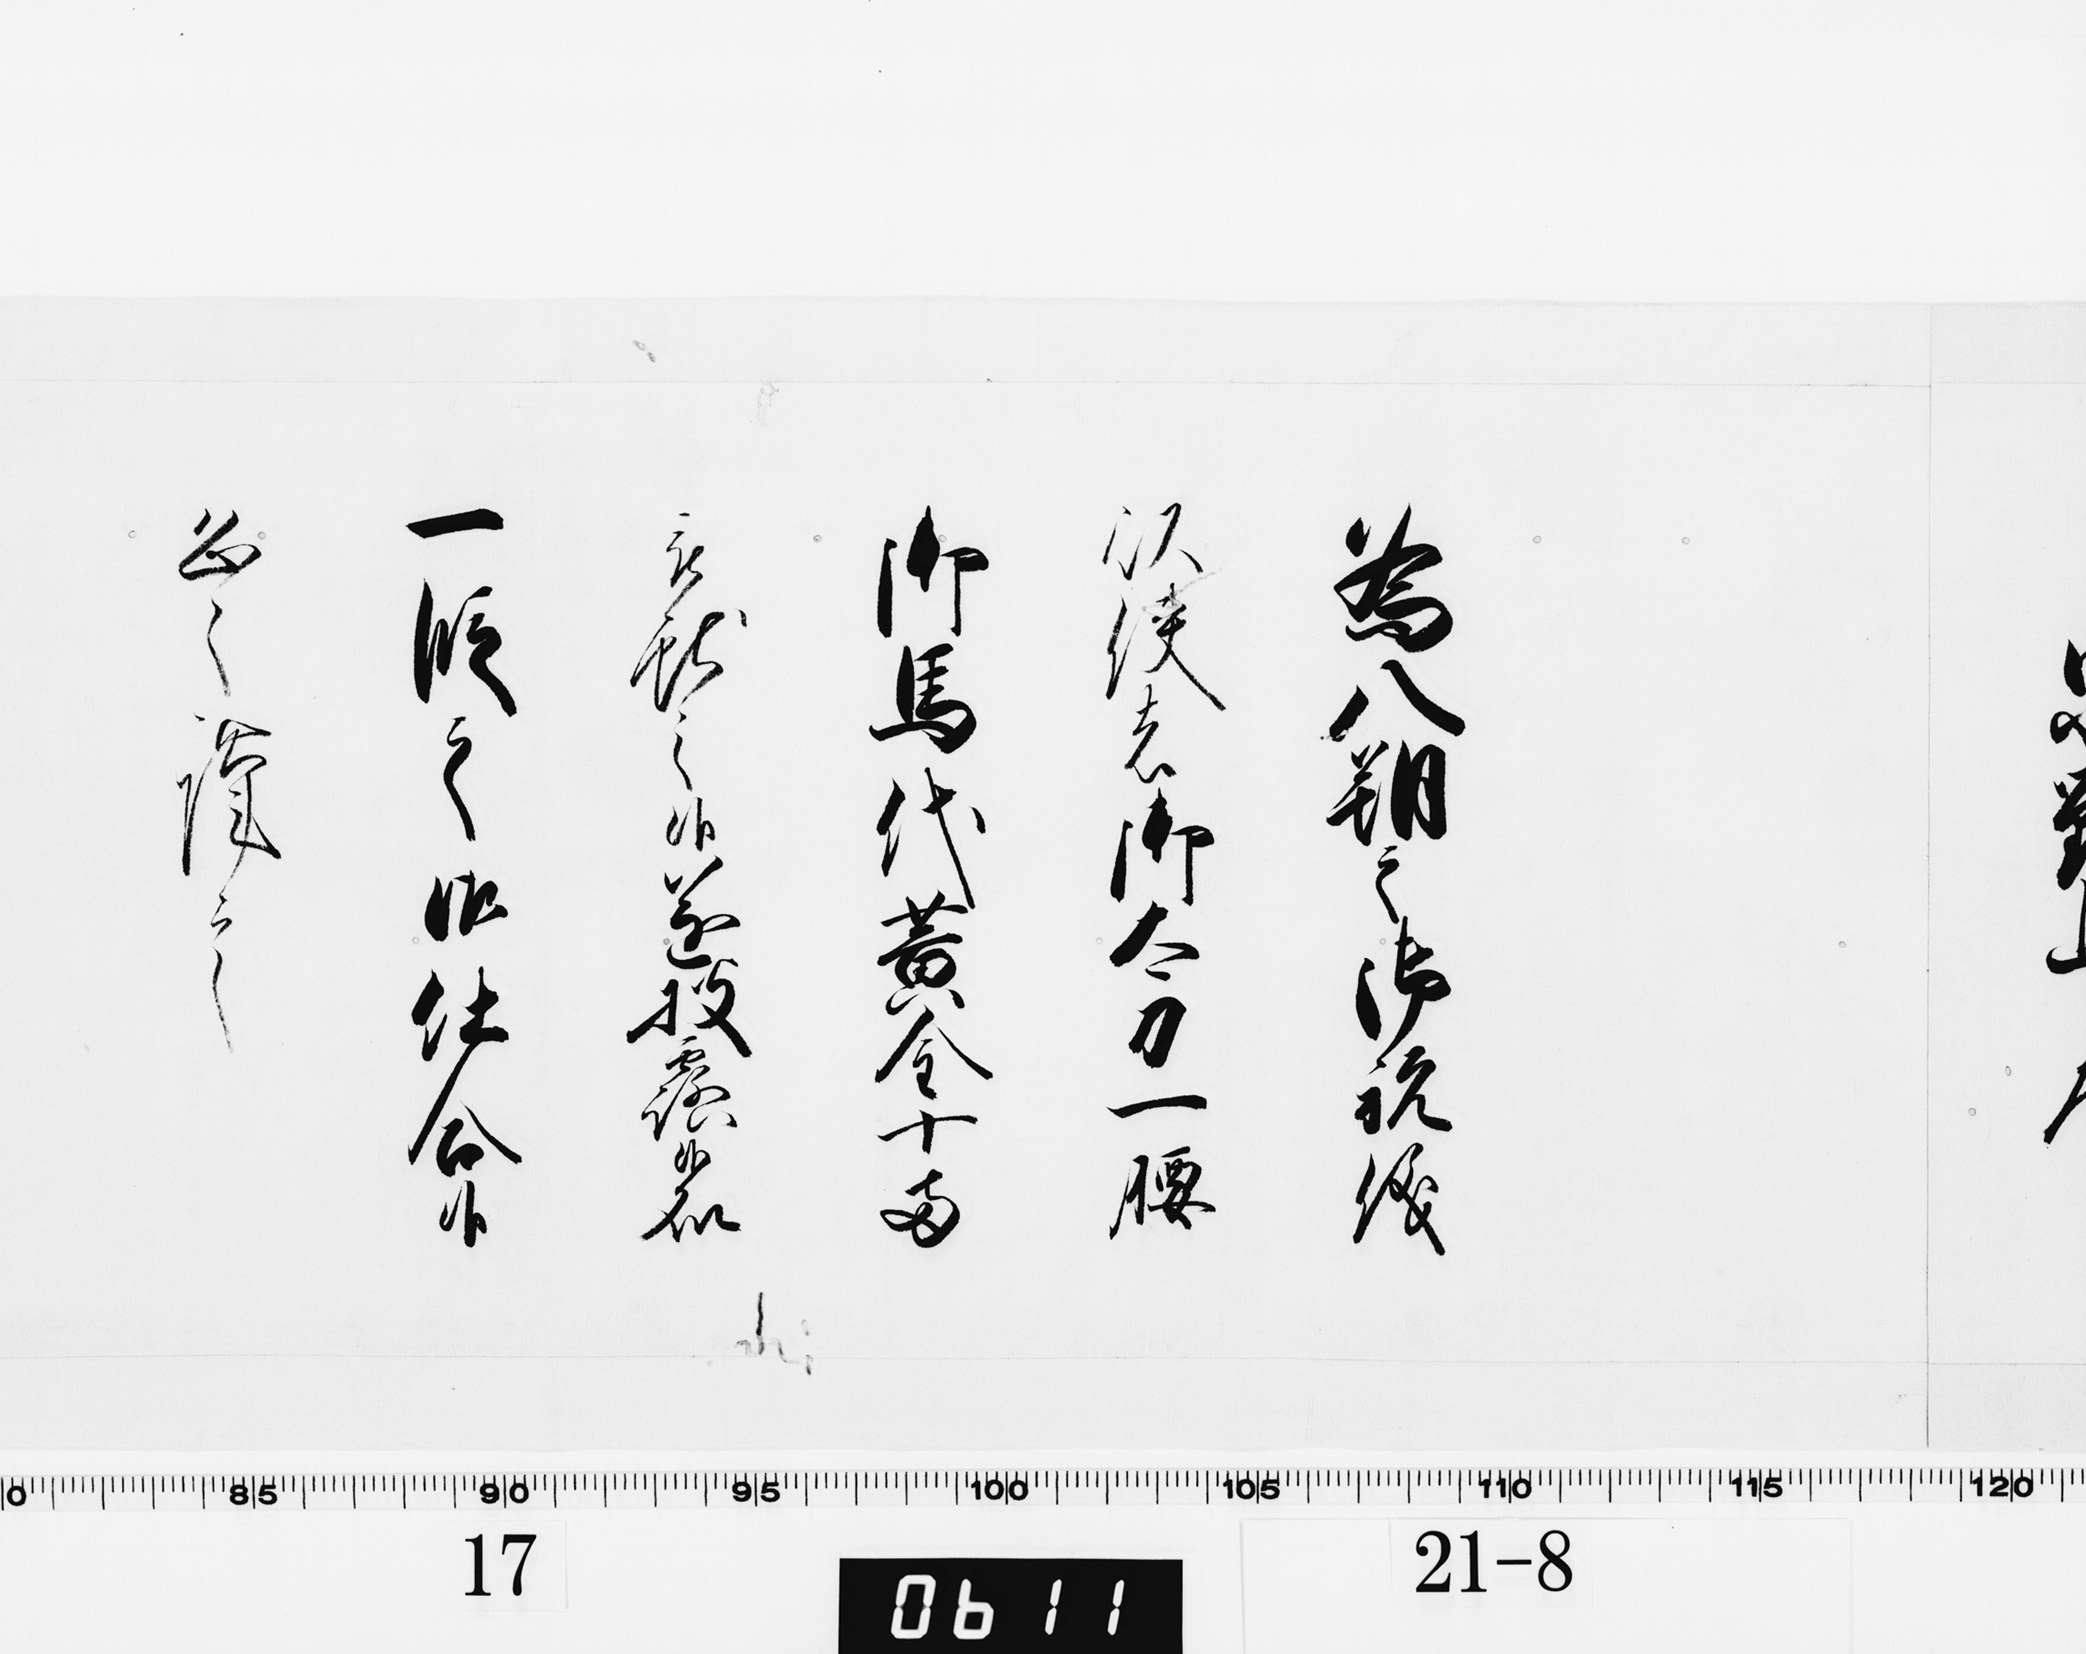 為八朔之御祝儀
以使者御太刀一腰
御馬代黄金十両
被献之候遂披露候処
一段之御仕合候
恐々謹言
85 90 95 100 105 110 115 120
17
21-8
0611